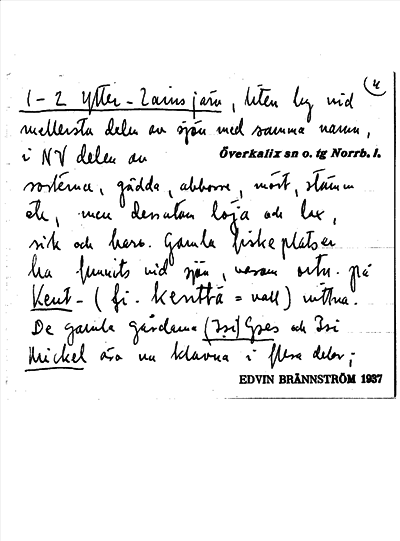 (4
1-2 Ytter-Lainsjärv, liten by vid
mellersta delen av sjön med samma namn,
i NV delen av
Överkalix sn o. tg Norrb. l.
sorterna, gädda, abborre, mört, stäm
etc, men dessutom löja och lax,
sik och harr. Gamla fiskeplatser
ha funnits vid sjön, varom ortn. på
Kent- (fi. kenttä = vall) vittna.
De gamla gårdarna (Isi) och Isi
Mickel äro nu klavna i flera delar;
EDVIN BRÄNNSTRÖM 1937